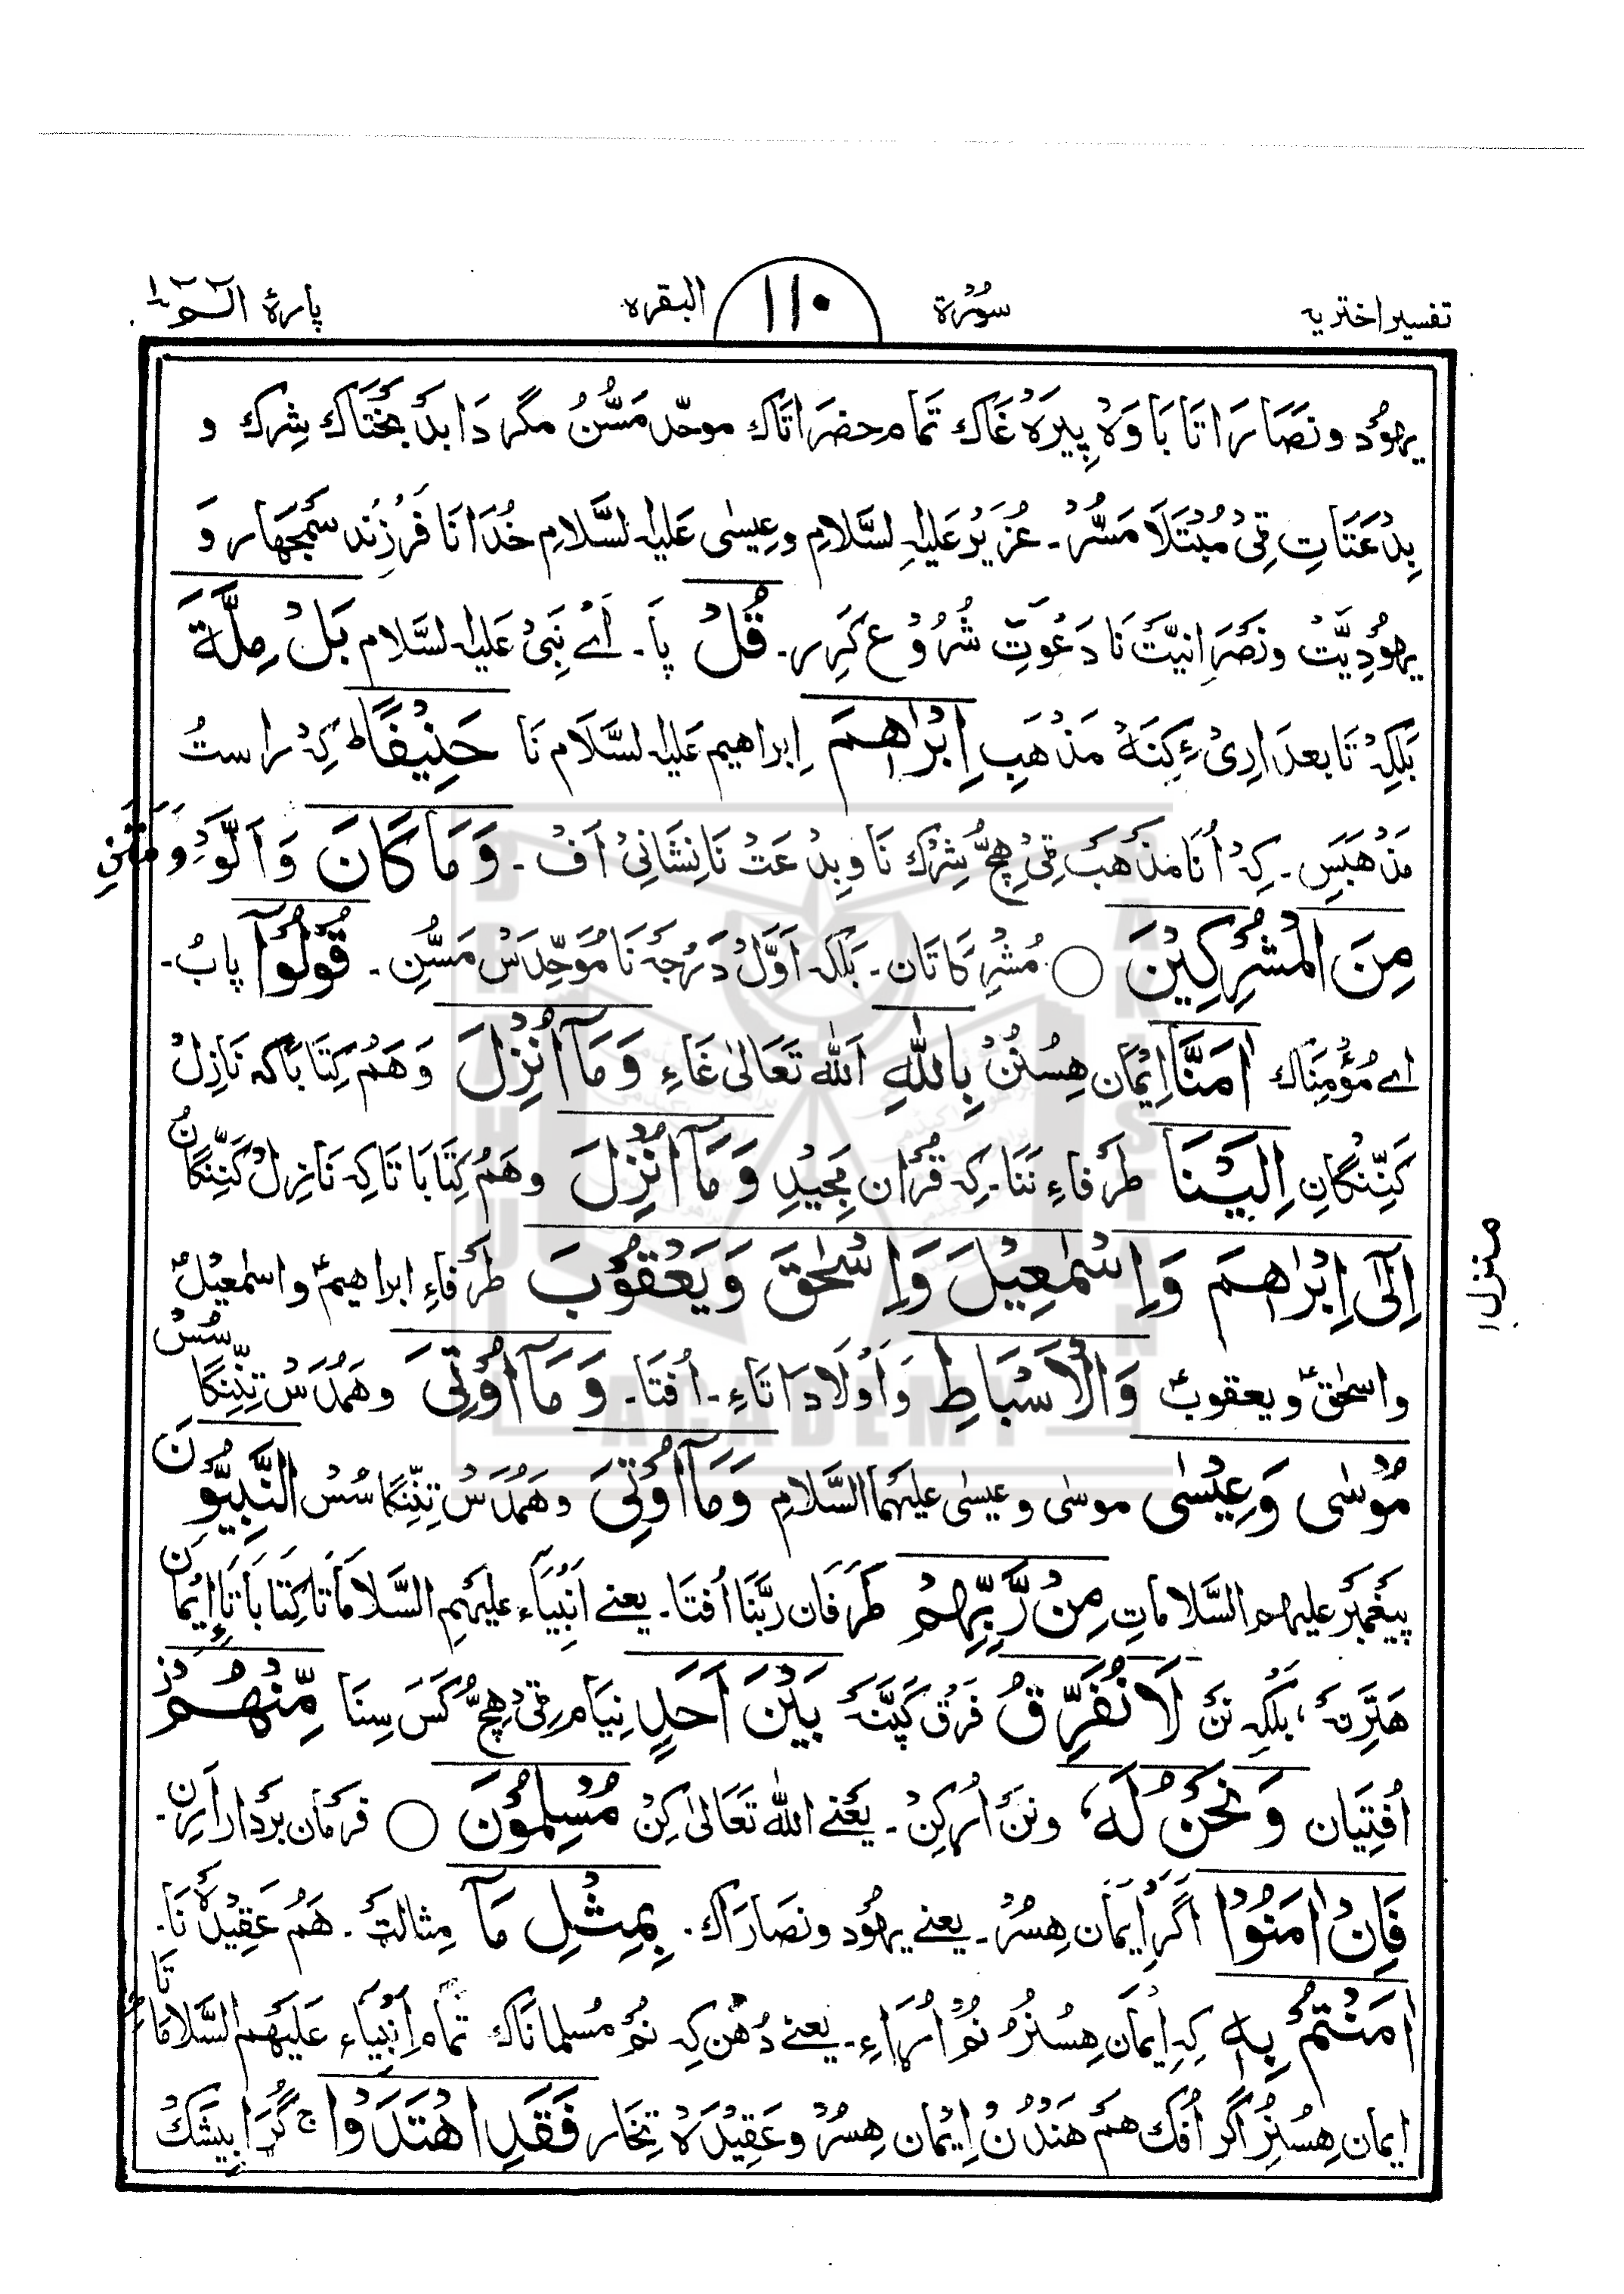 تفسیر اختریہ سُورۃ ۱۱۰ البقرہ پارۂ الٓـمّٓ ۱
یہوُد و نصَارَاتَا بَاوَہ پِیرَہ غَاک تمام حضرَاتَاک موحّد مَسُّنُ مگر دَا بدبَختَاک شِرک و
بِدعَتَاتِ ٹی مُبْتَلَا مَسُّرْ۔ عُزَیْر عَلَیْہِ السَّلَامِ و عِیسٰی عَلَیْہِ السَّلَامِ خُدَانَا فَرْزَنْد سَمجھَار وَ
یہوُدِیَّتْ و نَصْرَانیَّتْ نَا دَعْوَتِ شُرُوْع کَرِیر۔ قُلْ پَا۔ اَے نَبِیْ عَلَیْہِ السَّلَام بَلْ مِلَّةَ
بَلکِہْ تَابعدَارِیْ ءِ کِنَہْ مَذْھَبِ اِبْرٰاهٖمَ اِبراھیم عَلَیْہِ السَّلَام نَا حَنِیْفًاؕ کِہْ راستُ
مَذْھَبَسِ۔ کِہْ اُنَا مَذْھَبْ ٹِیْ ہِچُّ شِرْک نَا و بِدْعَتْ نَا نِشَانِیْ اَفْ۔ وَمَا کَانَ وَ اَلَّوْ
مِنَ الْمُشْرِکِیْنَ ○ مُشْرِکَاتَان۔ بَلکہ اَوَّلْ دَرْجَہ نَا مُوَحِّدَسْ مَسُّنِ۔ قُوْلُوْٓا پابُ۔
اے مُؤْمِنَاک اٰمَنَّا اِیْمَان ھِسُنُنْ بِاللّٰهِ اَللّٰہ تَعَالٰی غَاءِ وَمَآ اُنْزِلَ وَ ھَمْ کِتَابَا کہ نَازِلْ
کَنِّنْگَانِ اِلَیْنَا طرفاءِ نَنَا۔ کِہ قُرْاٰن مَجِیْدِ وَمَآ اُنْزِلَ و ھَمْ کِتَابَا تَا کِہ نَازِلْ کَنِّنْگَانُ
اِلٰٓی اِبْرٰاهٖمَ وَاِسْمٰعِیْلَ وَاِسْحٰقَ وَیَعْقُوْبَ طرفاءِ ابراھیمؑ و اسمٰعیلؑ
و اسحٰقؑ و یعقوبؑ وَالْاَسْبَاطِ وَ اَوْلَادَاتَاءِ۔ اُفْتَا۔ وَمَآ اُوْتِیَ و ھَمْدَسْ تِنِّنگَا سُسْ
مُوْسٰی وَعِیْسٰی موسٰی و عیسٰی علیہمَا السَّلَامِ وَمَآ اُوْتِیَ و ھَمْدَسْ تِنِّنگَا سُسْ النَّبِیُّوْنَ
پیغمبَر علیہم السَّلَامَاتِ مِنْ رَّبِّهِمْ طَرَفَان رَبَّنَا اُفتَا۔ یعنے اَنْبِیَآء علیہمِ السَّلَامَاتَا کِتَابَاتَاءِ اِیْمَان
ھَتَّرِنَہ، بلکِہ نَنْ لَا نُفَرِّقُ فَرْق کَپَّنَہ بَیْنَ اَحَدٍ نِیَام ٹِیْ ہِچُّ کَسَ سِنَا مِّنْهُمْ
اُفْتِیَان وَنَحْنُ لَهٗ وَ نَنْ اُرکِنْ۔ یَعْنے اللّٰہ تَعَالٰی کِنْ مُسْلِمُوْنَ ○ فرمَان بردَار اَرِن۔
فَاِنْ اٰمَنُوْا اَگَر اِیْمَان ھِسُرْ۔ یعنے یہوُد و نصَارَاک۔ بِمِثْلِ مَآ مِثَالتْ۔ ھَمْ عَقِیْدَہ نَا۔
اٰمَنْتُمْ بِهٖ کِہ اِیْمَان ھِسُنُرْ نُمْ اُرَاءِ۔ یعنے دُھُن کِہ نُمْ مُسلمانَاک تمام اَنْبِیَآء عَلَیْہِمُ السَّلَامَاتَا
ایمان ھِسُنُرْ اَگَر اُفک ھَم ھَنْدُنْ اِیْمَان ھِسُرْ و عَقِیْدَہ تِخَار فَقَدِ اهْتَدَوْا ج گُڑَا بیشَکْ
منزل ۱